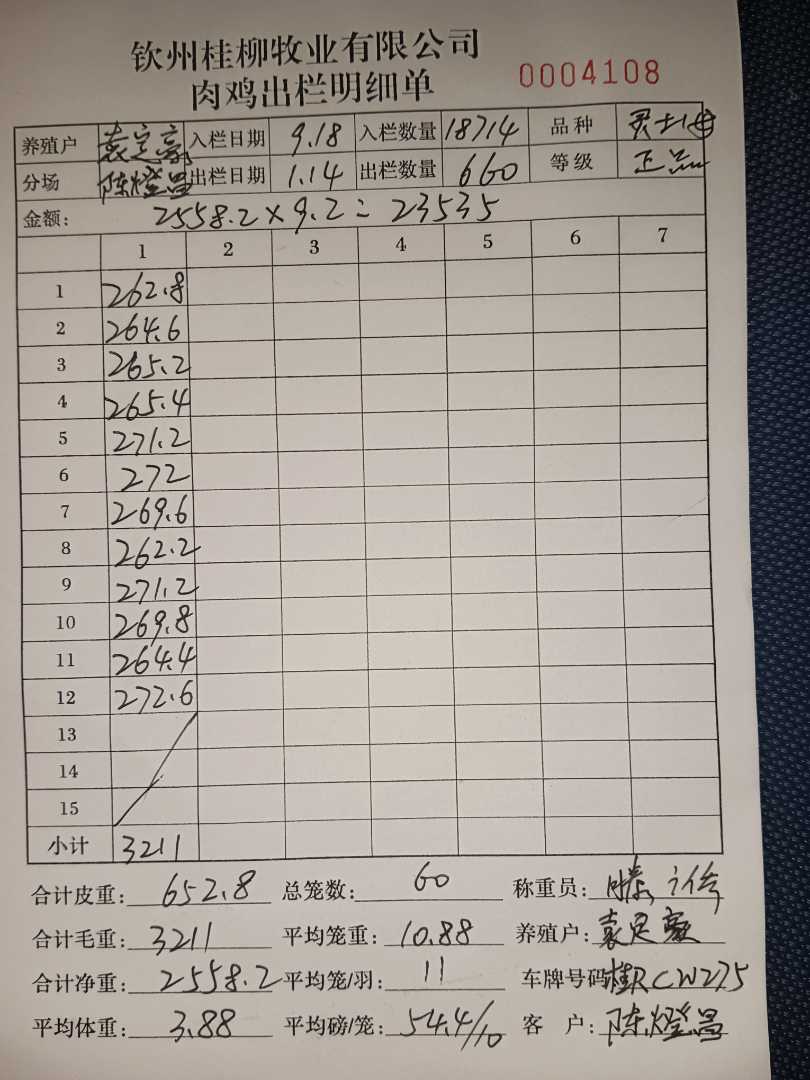 钦州桂柳牧业有限公司
肉鸡出栏明细单 0004108
养殖户 袁定豪 入栏日期 9.18 入栏数量 18714 品种
分场 陈燈昌 出栏日期 1.14 出栏数量 660 等级 正品
金额: 2558.2×9.2=23535
1 2 3 4 5 6 7
1 262.8
2 264.6
3 265.2
4 265.4
5 271.2
6 272
7 269.6
8 262.2
9 271.2
10 269.8
11 264.4
12 272.6
13
14
15
小计 3211
合计皮重: 652.8 总笼数: 60 称重员:
合计毛重: 3211 平均笼重: 10.88 养殖户: 袁定豪
合计净重: 2558.2 平均笼/羽: 11 车牌号码 桂RCW275
平均体重: 3.88 平均磅/笼: 54.4/10 客 户: 陈燈昌